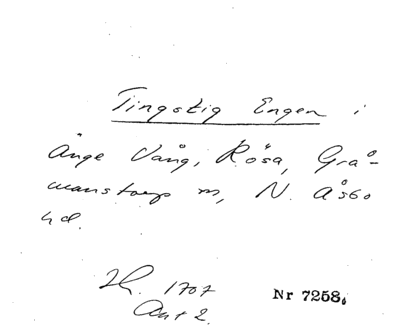 Tingstig Engen i
Änge Vång, Rösa, Grå-
manstorp sn, N. Åsbo
hd.
LR. 1707
Ant 2.
Nr 7258.